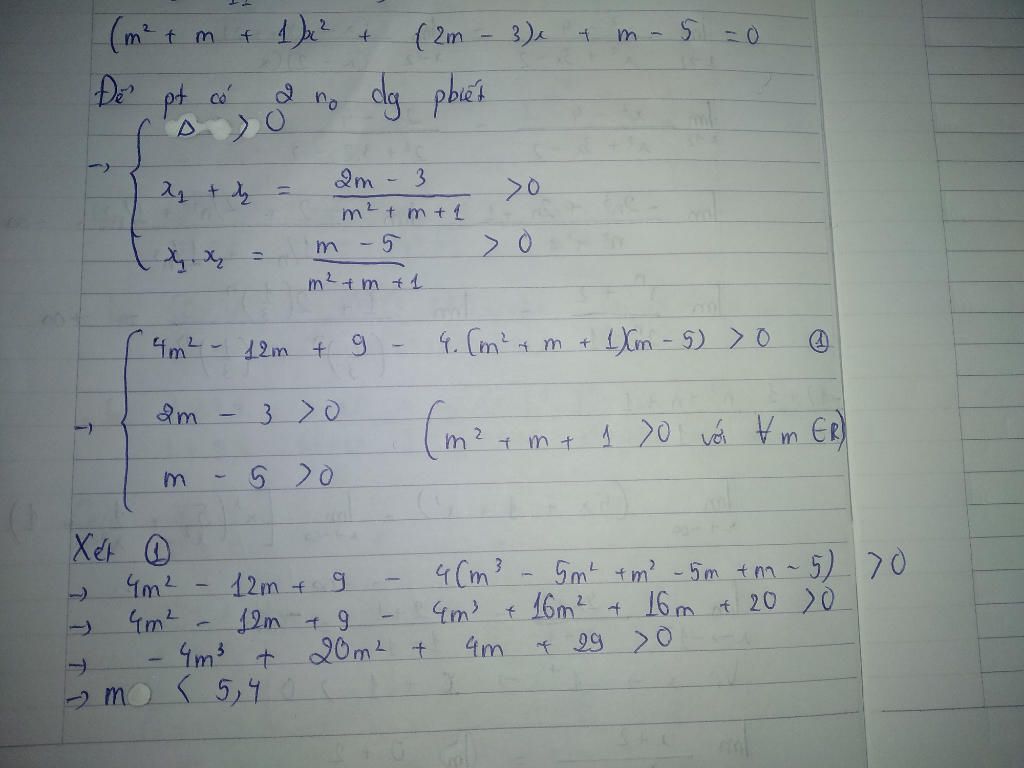 (m² + m + 1)x² + (2m - 3)x + m - 5 = 0
Để pt có 2 no dg pbiét
Δ > 0
→ x₁ + x₂ = (2m - 3)/(m² + m + 1) > 0
x₁ . x₂ = (m - 5)/(m² + m + 1) > 0
4m² - 12m + 9 - 4.(m² + m + 1)(m - 5) > 0 ①
→ 2m - 3 > 0 (m² + m + 1 > 0 với ∀ m ∈ R)
m - 5 > 0
Xét ①
→ 4m² - 12m + 9 - 4(m³ - 5m² + m² - 5m + m - 5) > 0
→ 4m² - 12m + 9 - 4m³ + 16m² + 16m + 20 > 0
→ - 4m³ + 20m² + 4m + 29 > 0
→ m < 5,4